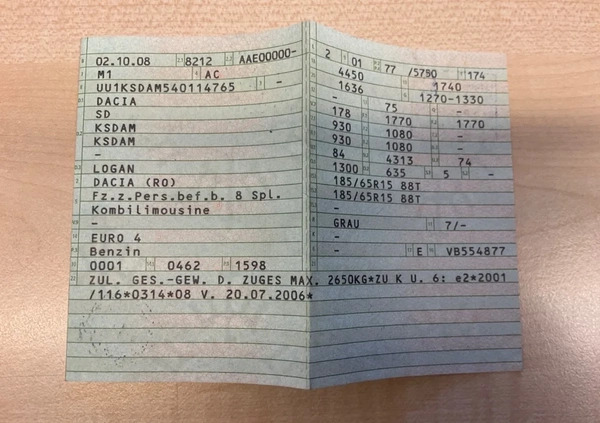 02.10.08 8212 AAE00000-
M1 AC
UU1KSDAM540114765 -
DACIA
SD
KSDAM
KSDAM
-
LOGAN
DACIA (RO)
Fz.z.Pers.bef.b. 8 Spl.
Kombilimousine
-
EURO 4
Benzin
0001 0462 1598
2 01 77 /5750 174
4450 1740
1636 1270-1330
- 75 -
178 1770 1770
930 1080 -
930 1080 -
84 4313 74
1300 635 5 -
185/65R15 88T
185/65R15 88T
-
GRAU 7/-
-
- E VB554877
ZUL. GES.-GEW. D. ZUGES MAX. 2650KG*ZU K U. 6: e2*2001
/116*0314*08 V. 20.07.2006*